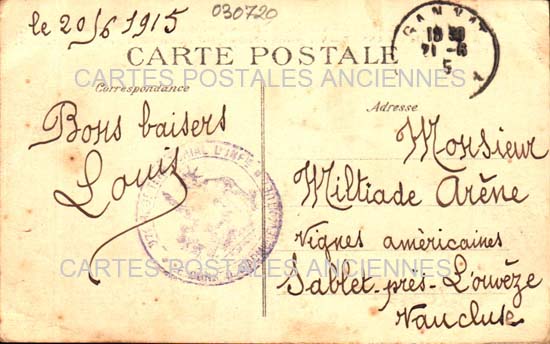 le 20/6 1915
030720
GANNAT
21 - 6
CARTE POSTALE
CARTES POSTALES ANCIENNES
Correspondance
Adresse
Bons baisers
Louis
Monsieur
Miltiade Arène
Vignes américaines
Sablet-près-L'ouvèze
Vaucluse
CARTES POSTALES ANCIENNES